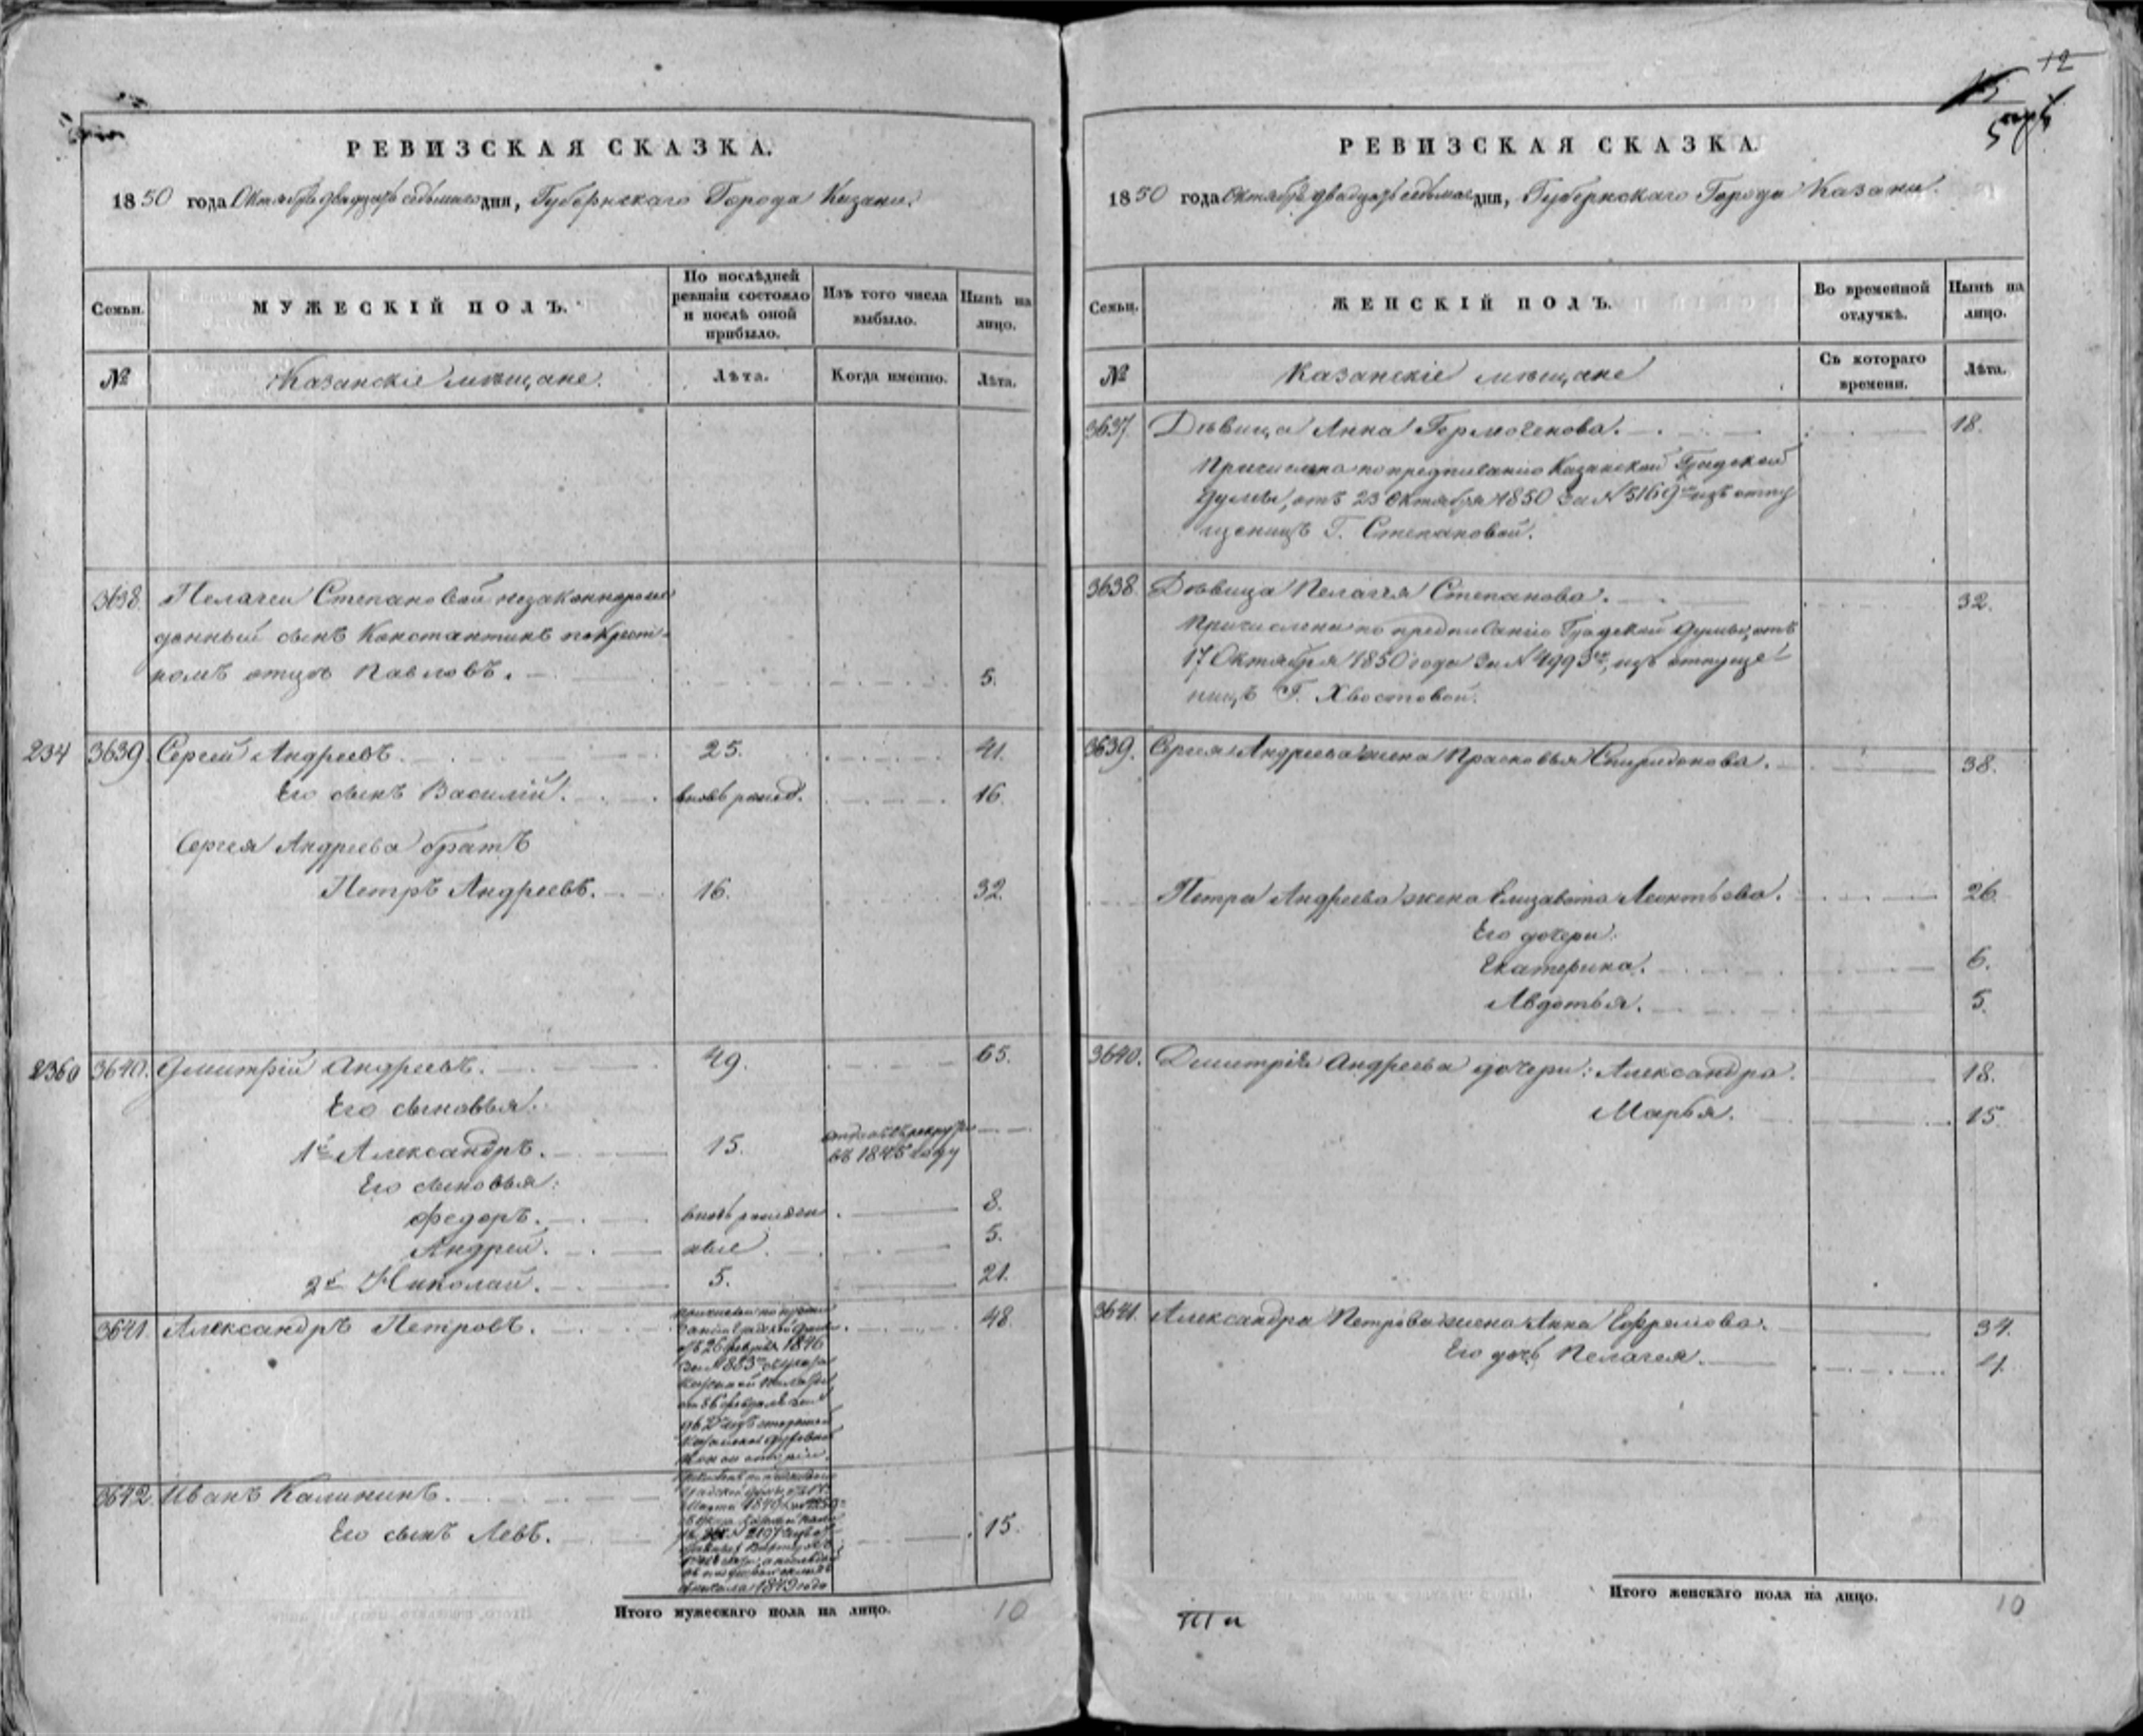 РЕВИЗСКАЯ СКАЗКА.
1850 года Октября двадцать седьмаго дня, Губернскаго Города Казани.
Семьи.
МУЖЕСКІЙ ПОЛЪ.
По послѣдней ревизіи состояло и послѣ оной прибыло.
Изъ того числа выбыло.
Нынѣ на лицо.
№
Казанскіе мѣщане.
Лѣта.
Когда именно.
Лѣта.
3638. Пелагеи Степановой незаконнорож
денный сынъ Константинъ по крест-
номъ отцѣ Павловъ. 5.
234 3639. Сергей Андреевъ. 25. 41.
Его сынъ Василій. вновь рожд. 16.
Сергея Андреева братъ
Петръ Андреевъ. 16. 32.
2360 3640. Дмитрій Андреевъ. 49. 65.
Его сыновья:
1й Александръ. 15. отданъ въ рекруты
въ 1845 году
Его сыновья:
Федоръ. вновь рожден 8.
Андрей. ные. 5.
2й Николай. 5. 21.
3641. Александръ Петровъ. 48.
Градской Думы
26 февраля 1846
3642. Иванъ Калининъ.
Его сынъ Левъ. 15.
Итого мужескаго пола на лицо. 10
12
15
РЕВИЗСКАЯ СКАЗКА.
1850 года Октября двадцать седьмаго дня, Губернскаго Города Казани.
Семьи.
ЖЕНСКІЙ ПОЛЪ.
Во временной отлучкѣ.
Нынѣ на лицо.
№
Казанскіе мѣщане
Съ котораго времени.
Лѣта.
3637. Дѣвица Анна Гермогенова. 18.
Причислена по предписанію Казанской Градской
Думы, отъ 23 Октября 1850 за № 5169 изъ отпу
щеницъ Г. Степановой.
3638. Дѣвица Пелагея Степанова. 32.
Причислена по предписанію Градской Думы, отъ
17 Октября 1850 года за № 4993, изъ отпуще
ницъ Г. Хвостовой.
3639. Сергея Андреева жена Прасковья Спиридонова. 38.
Петра Андреева жена Елизавета Леонтьева. 26.
Его дочери:
Екатерина. 6.
Авдотья. 5.
3640. Дмитрія Андреева дочери: Александра. 18.
Марья. 15.
3641. Александра Петрова жена Анна Ефремова. 34.
Его дочь Пелагея. 4.
Итого женскаго пола на лицо. 10